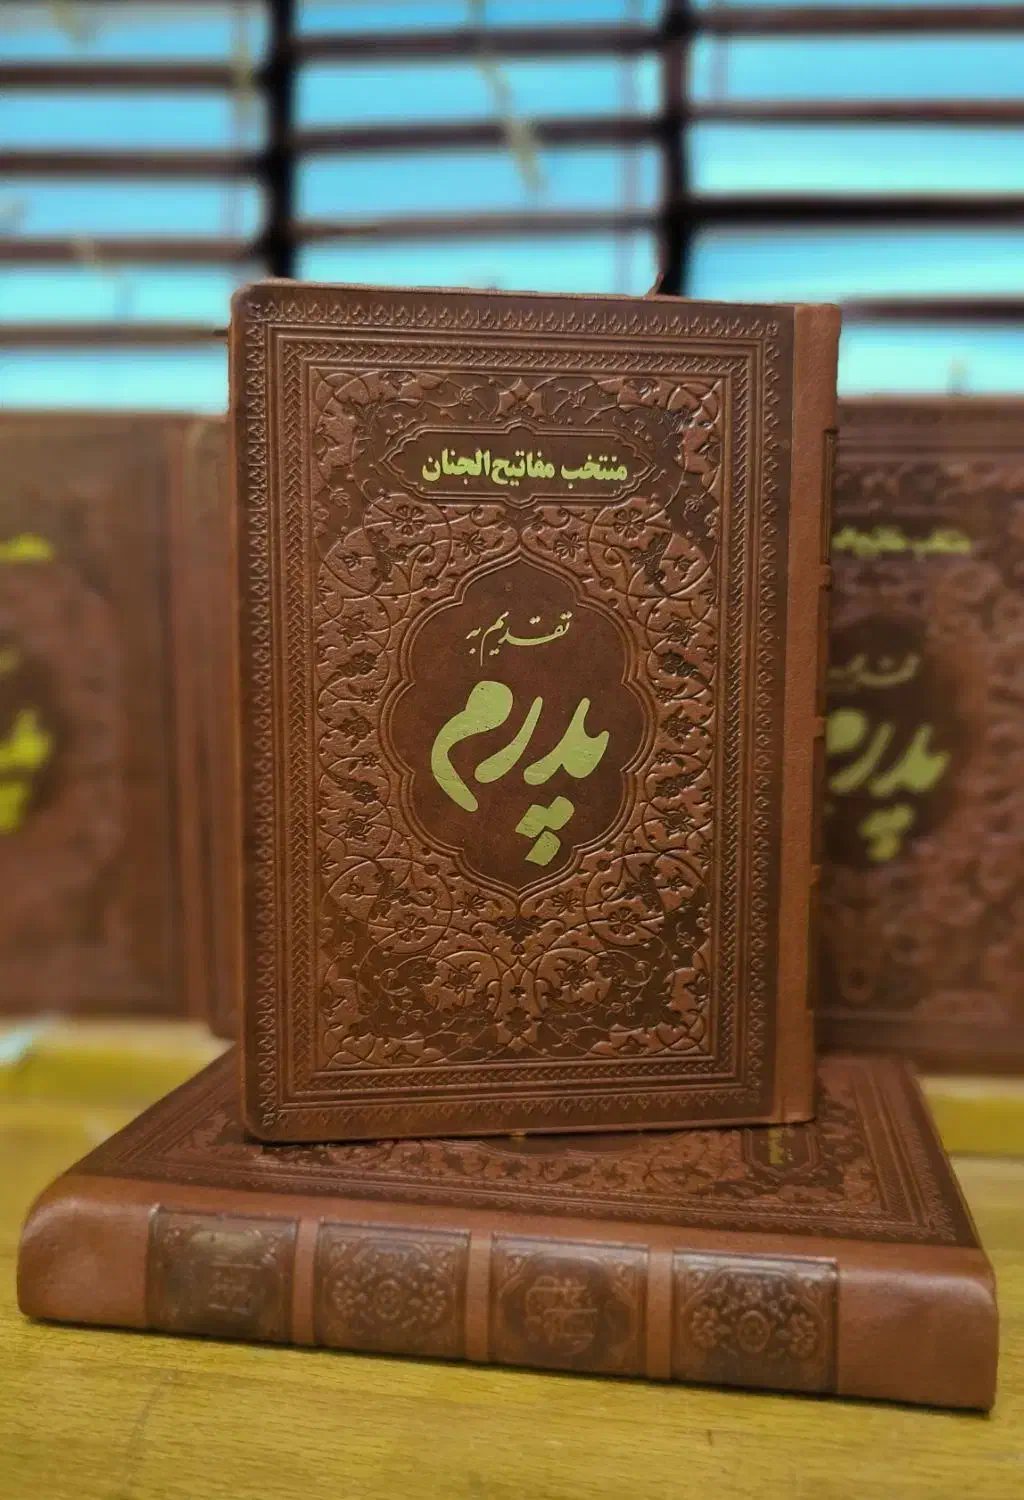 منتخب مفاتیح‌الجنان
تقدیم به
پدرم
منتخب
تقدیم
پدرم